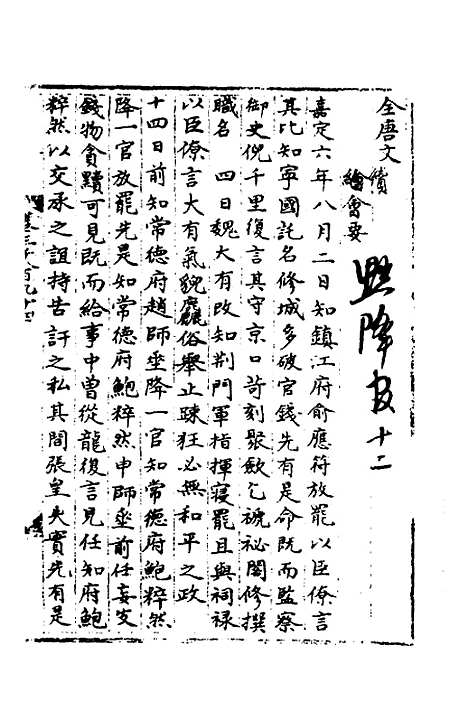 全唐文
續會要
黜降官十二
嘉定六年八月二日知鎮江府俞應符放罷以臣僚言
其比知寧國託名修城多破官錢先有是命既而監察
御史倪千里復言其守京口苛刻聚歛乞褫祕閣修撰
職名　四日魏大有改知荆門軍指揮寢罷且與祠禄
以臣僚言大有氣貌麤俗舉止疎狂必無和平之政
十四日前知常德府趙師𡍼降一官知常德府鮑粹然
降一官放罷先是知常德府鮑粹然申師𡍼前任妄支
錢物貪黷可見既而給事中曾從龍復言見任知府鮑
粹然以交承之誼持告訐之私其間張皇失實先有是